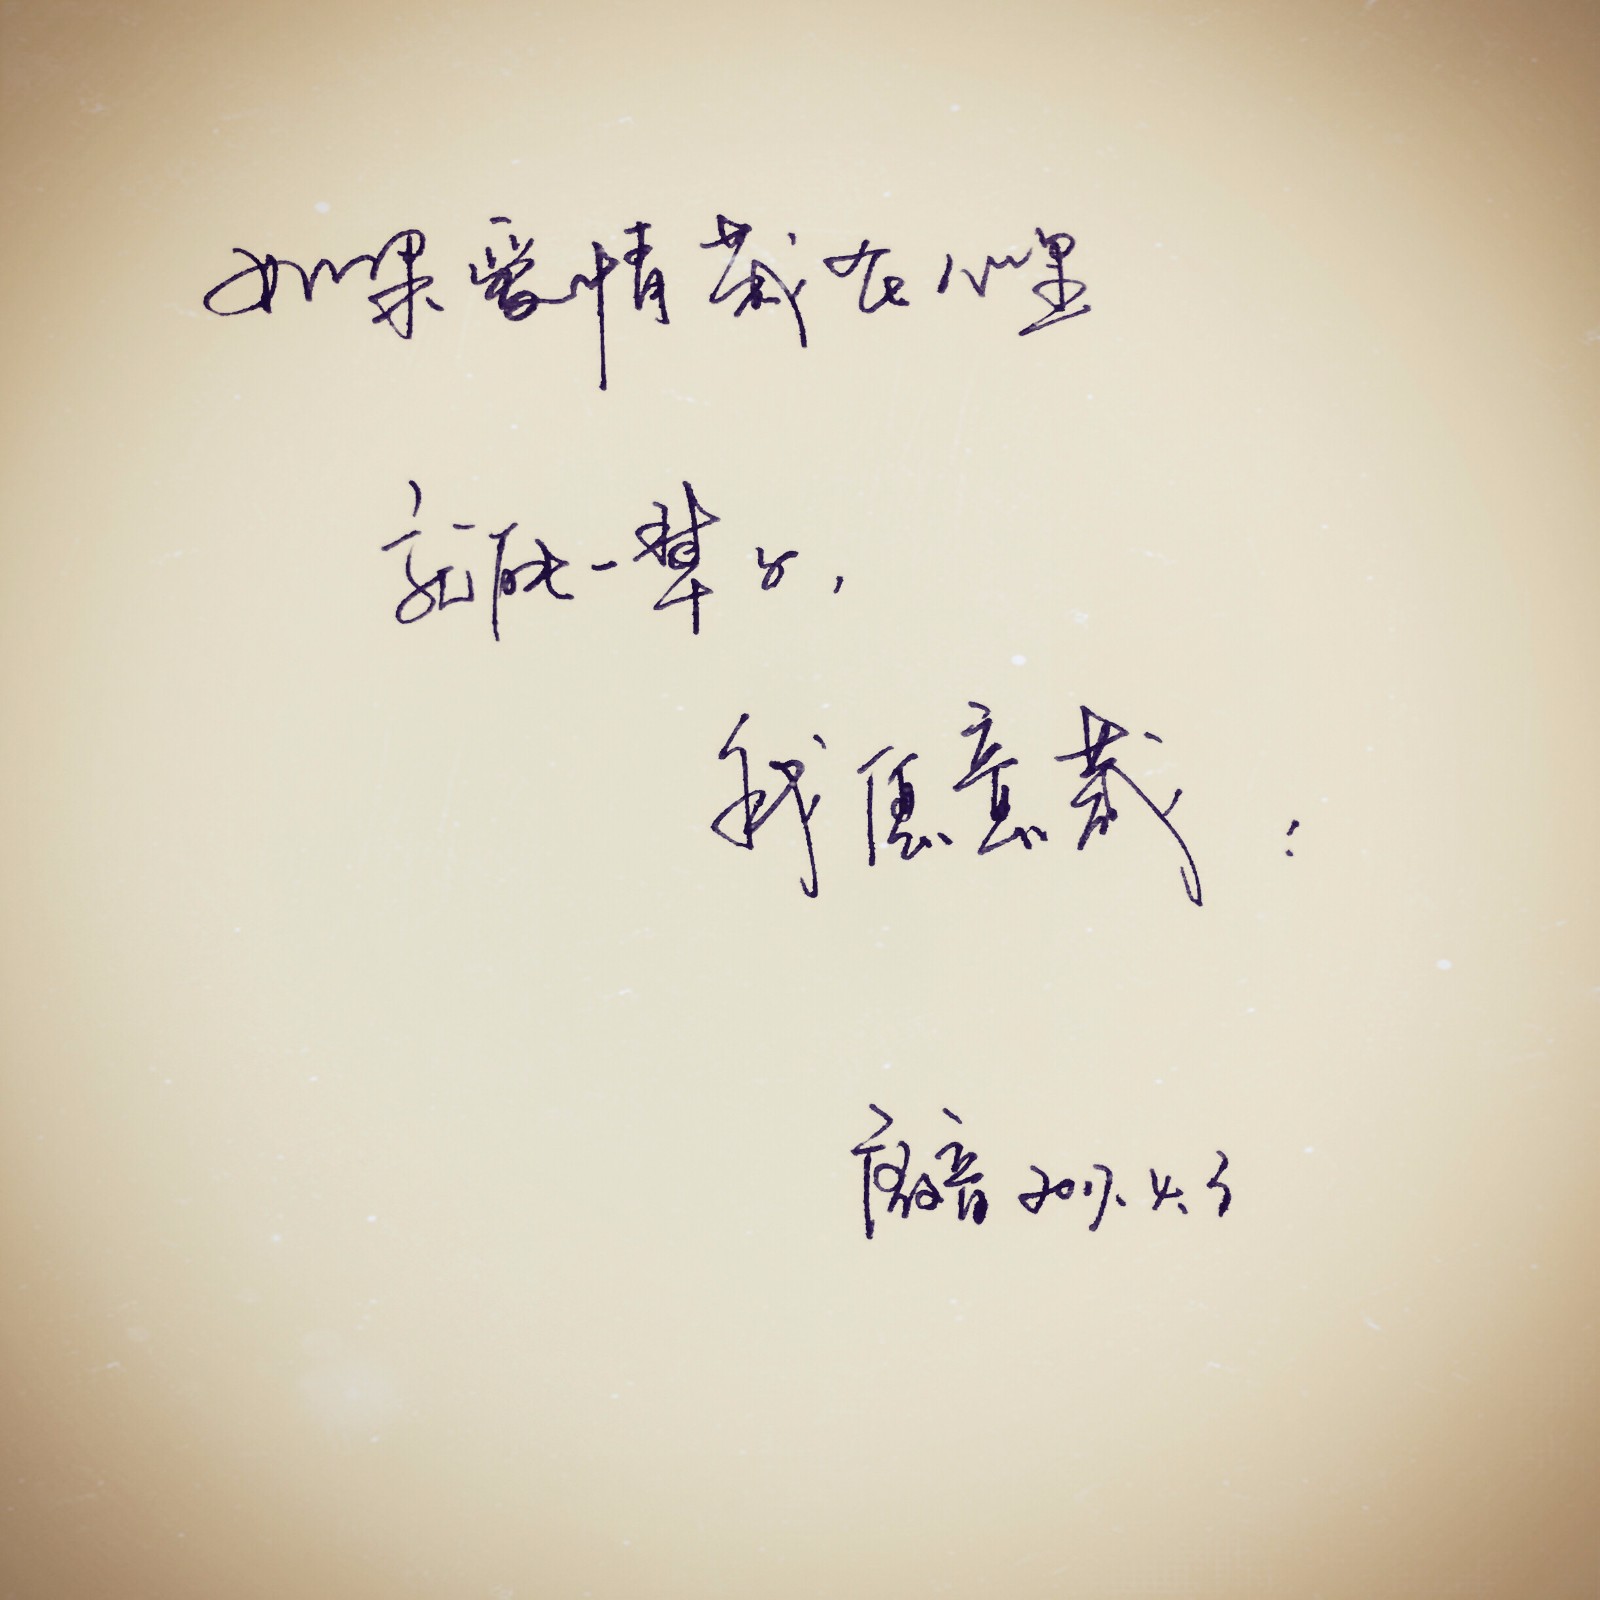 如果爱情栽在心里
就一辈子,
我愿意栽:
音 2017.4.